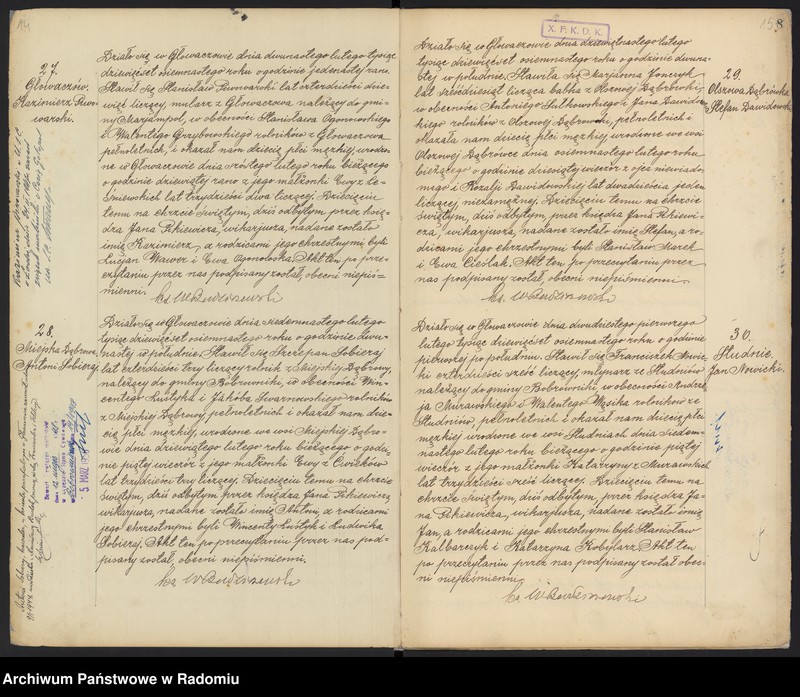 14
27.
Głowaczów.
Kazimierz Piwo-
warski.
Działo się w Głowaczowie dnia dwunastego lutego tysiąc
dziewięćset osiemnastego roku o godzinie jedenastej rano.
Stawił się Stanisław Piwowarski lat czterdzieści dzie-
więć liczący, mularz z Głowaczowa należący do gmi-
ny Marjampol, w obecności Stanisława Ogonowskiego
i Walentego Grzybowskiego rolników z Głowaczowa
pełnoletnich, i okazał nam dziecię płci męzkiej, urodzo-
ne w Głowaczowie dnia szóstego lutego roku bieżącego
o godzinie dziewiątej rano z jego małżonki Ewy z Le-
śniewskich lat trzydzieści dwa liczącej. Dziecięciu
temu na chrzcie świętym, dziś odbytym przez księ-
dza Jana Pikiewicza, wikarjusza, nadane zostało
imię Kazimierz, a rodzicami jego chrzestnymi byli
Lucjan Wawer i Ewa Ogonowska. Akt ten po prze-
czytaniu przez nas podpisany został, obecni niepiś-
mienni.
28.
Miejska Dąbrowa.
Antoni Sobieraj.
Działo się w Głowaczowie dnia siedemnastego lutego
tysiąc dziewięćset osiemnastego roku o godzinie dwu-
nastej w południe. Stawił się Szczepan Sobieraj
lat czterdzieści trzy liczący rolnik z Miejskiej Dąbrowy,
należący do gminy Bobrowniki, w obecności Win-
centego Łustyka i Jakóba rolników
z Miejskiej Dąbrowy, pełnoletnich i okazał nam dzie-
cię płci męzkiej, urodzone we wsi Miejskiej Dąbro-
wie dnia dziewiątego lutego roku bieżącego o godzi-
nie piątej wieczór z jego małżonki Ewy z Ćwieków
lat trzydzieści trzy liczącej. Dziecięciu temu na chrzcie
świętym, dziś odbytym przez księdza Jana Pikiewicza,
wikarjusza, nadane zostało imię Antoni, a rodzicami
jego chrzestnymi byli Wincenty Łustyk i Ludwika
Sobieraj. Akt ten po przeczytaniu przez nas pod-
pisany został obecni niepiśmienni.
X. F. K. D. K.
158
Działo się w Głowaczowie dnia dziewiętnastego lutego
tysiąc dziewięćset osiemnastego roku o godzinie dwuna-
stej w południe. Stawiła się Marjanna Jończyk
lat sześćdziesiąt licząca babka z Olszowej Dąbrówki,
w obecności Antoniego Sułkowskiego i Jana Dawidow-
skiego rolników z Olszowej Dąbrówki, pełnoletnich i
okazała nam dziecię płci męzkiej urodzone we wsi
Olszowej Dąbrówce dnia osiemnastego lutego roku
bieżącego o godzinie dziesiątej wieczór z ojca niewiado-
mego i Rozalji Dawidowskiej lat dwadzieścia jeden
liczącej, niezamężnej. Dziecięciu temu na chrzcie
świętym, dziś odbytym, przez księdza Jana Pikiewi-
cza, wikarjusza, nadane zostało imię Stefan, a ro-
dzicami jego chrzestnymi byli Stanisław Marek
i Ewa Cieślak. Akt ten po przeczytaniu przez
nas podpisany został, obecni niepiśmienni.
29.
Olszowa Dąbrówka
Stefan Dawidowski
Działo się w Głowaczowie dnia dwudziestego pierwszego
lutego tysiąc dziewięćset osiemnastego roku o godzinie
pierwszej po południu. Stawił się Franciszek Nowic-
ki czterdzieści sześć liczący, młynarz ze Studniów
należący do gminy Bobrowniki, w obecności Andrze-
ja Murawskiego i Walentego Wąsika rolników ze
Studniów, pełnoletnich i okazał nam dziecię płci
męzkiej urodzone we wsi Studniach dnia siedem-
nastego lutego roku bieżącego o godzinie piątej
wieczór z jego małżonki Katarzyny z Murawskich
lat trzydzieści sześć liczącej. Dziecięciu temu na
chrzcie świętym, dziś odbytym przez księdza Ja-
na Pikiewicza, wikarjusza, nadane zostało imię
Jan, a rodzicami jego chrzestnymi byli Stanisław
Kalbarczyk i Katarzyna Kobylarz. Akt ten
po przeczytaniu przez nas podpisany został obec-
ni niepiśmienni.
30.
Studnie.
Jan Nowicki.
Archiwum Państwowe w Radomiu